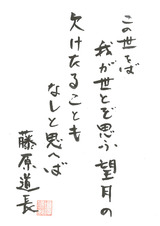 この世をば
我が世とぞ思ふ望月の
欠けたることも
なしと思へば
藤原道長